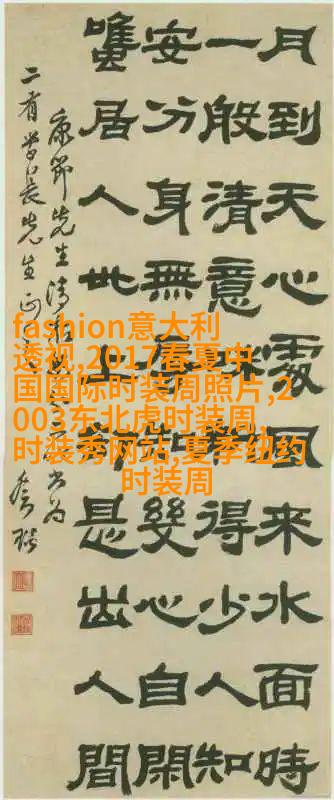 月到天心處風來水面時
一般清意味料得少人知
安分身無辱知幾心自閑
雖居人世上卻是出人間
康節先生清
二有學長先生正
fashion意大利
透视,2017春夏中
国国际时装周照片,2
003东北虎时装周,
时装秀网站,夏季纽约
时装周